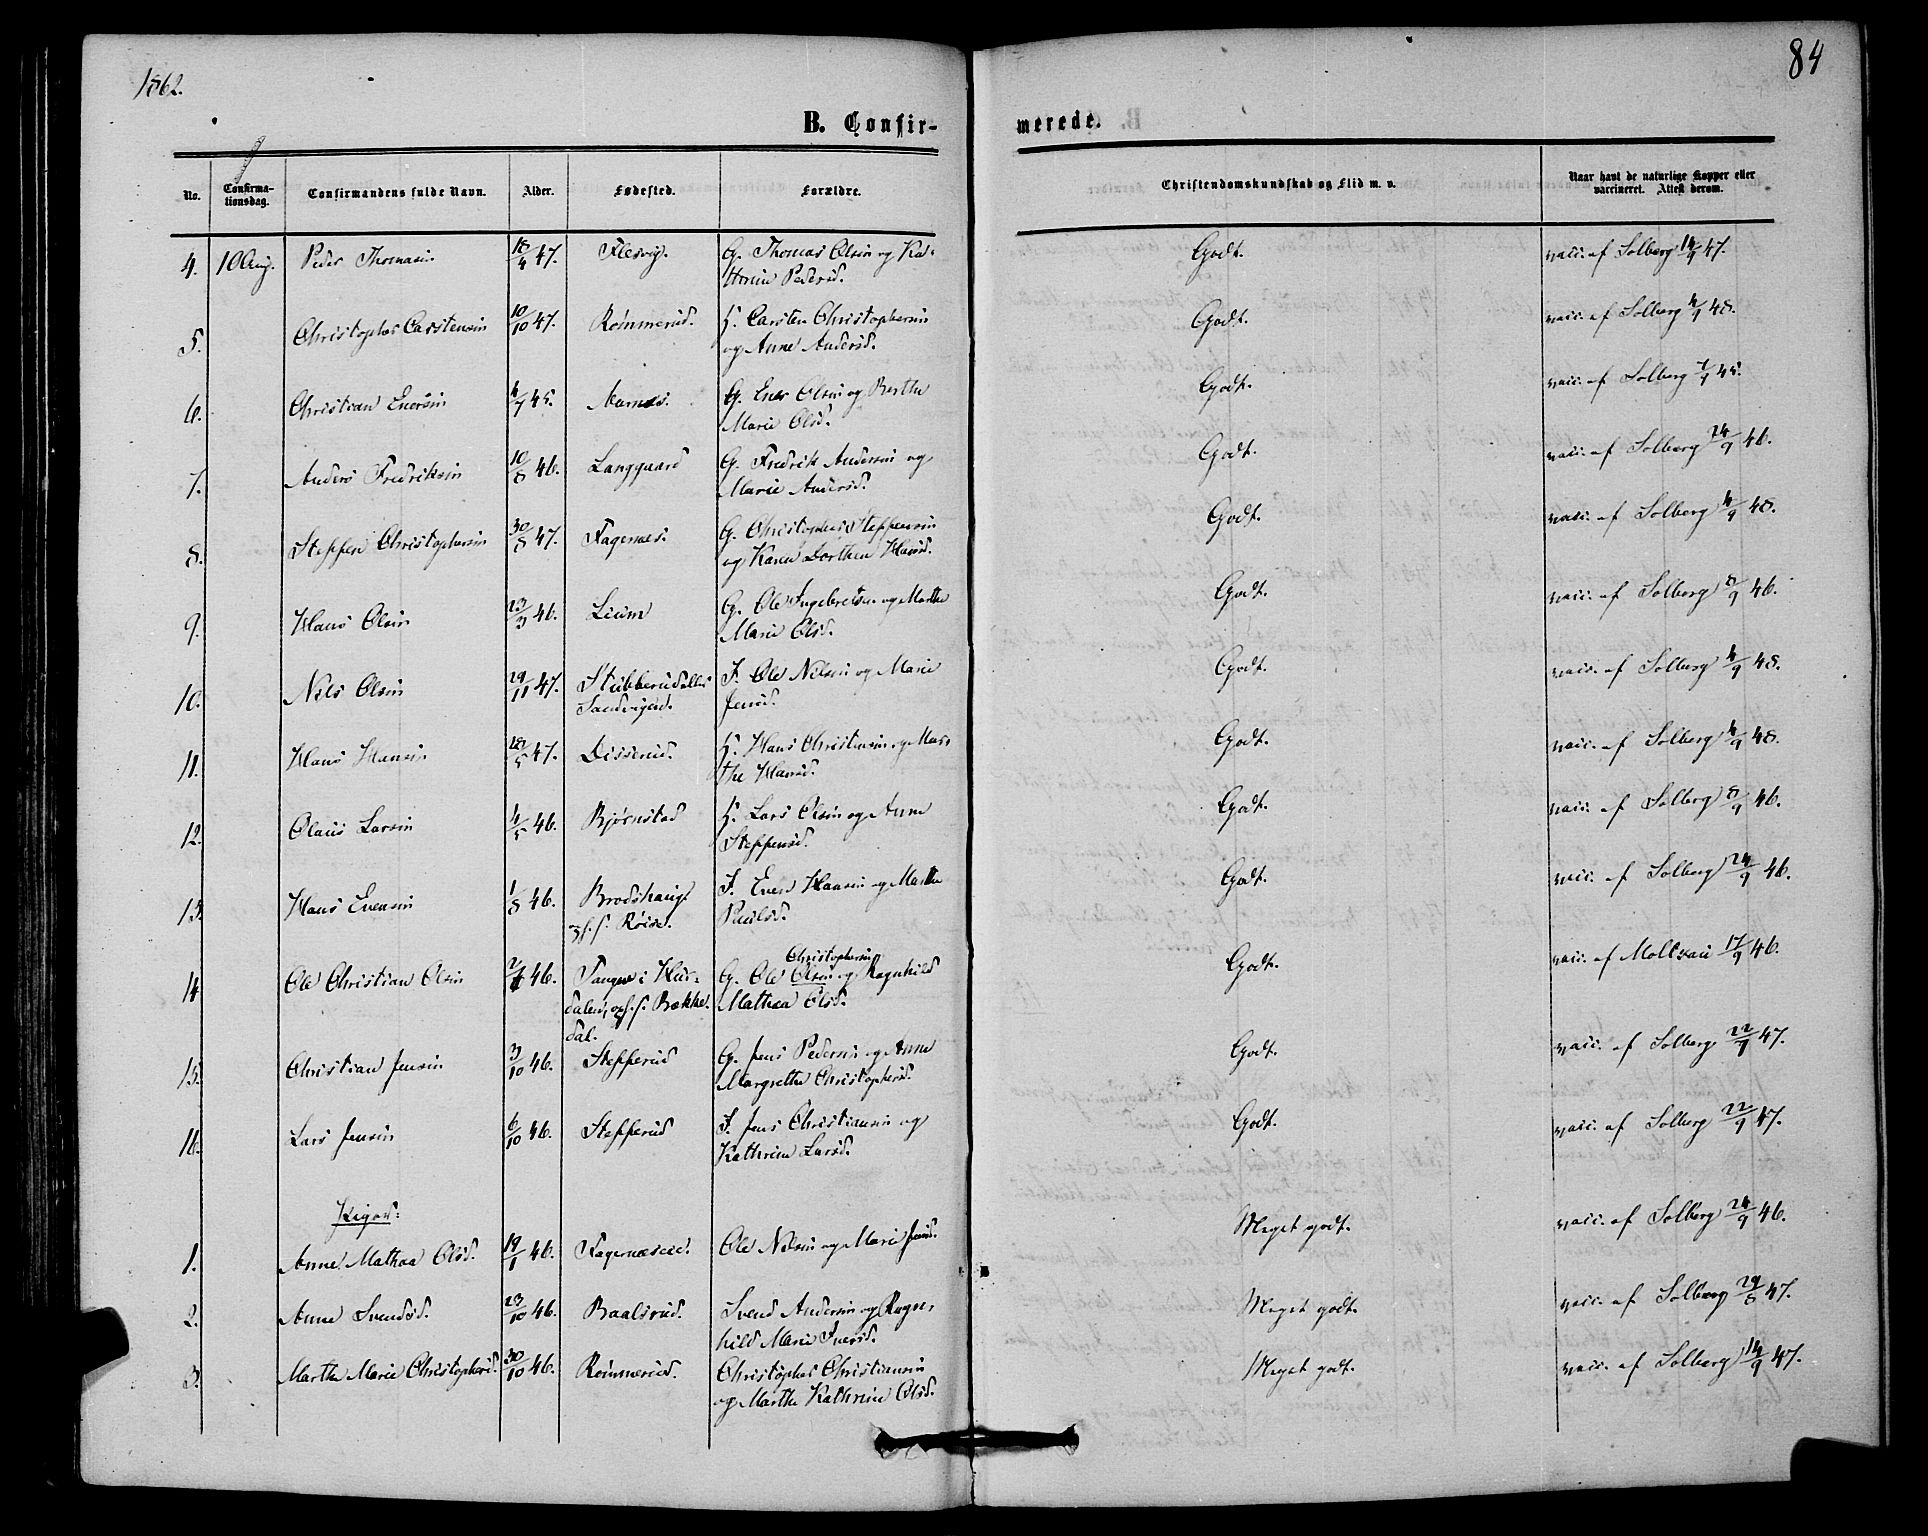 1862.
84
B. Confir-
merede.
No. Confirma-tionsdag. Confirmandens fulde Navn. Alder. Fødested. Forældre. Christendomskundskab og Flid m. v. Naar havt de naturlige Kopper eller vaccineret. Attest derom.
4. 10 Aug. Peder Thomasen 18/4 47. Flesvig. G. Thomas Olsen og Ka- Godt. vacc. af Solberg 14/9 47.
thrine Pedersd.
5. Christopher Carstensen 10/10 47. Römmerud. H. Carsten Christophersen Godt. vacc. af Solberg 4/9 48.
og Anne Andersd.
6. Christian Enersen 4/7 45. Aarnes. G. Ener Olsen og Berthe Godt. vacc. af Solberg
Marie Olsd.
7. Anders Fredriksen 10/8 46. Langgaard G. Fredrik Andersen og Godt. vacc. af Solberg 24/9 46.
Marie Andersd.
8. Steffen Christophersen 30/8 47. Fagernæs. G. Christopher Steffensen Godt. vacc. af Solberg 4/9 48.
og Karen Dorthea Hansd.
9. Hans Olsen 23/3 46. Lium G. Ole Ingebretsen og Marthe Godt. vacc. af Solberg 8/9 46.
Marie Olsd.
10. Nils Olsen 29/11 47. Stubberud eller J. Ole Nilsen og Marie Godt. vacc. af Solberg 4/9 48.
Sandvigen. Jensd.
11. Hans Hansen 28/5 47. Disserud. H. Hans Christiansen og Mar- Godt. vacc. af Solberg 4/9 48.
the Hansd.
12. Olaus Larsen 4/5 46. Bjørnstad H. Lars Olsen og Anne Godt. vacc. af Solberg 8/9 46.
Steffensd.
13. Hans Evensen 1/8 46. Brodshaug J. Even Hansen og Marthe Godt. vacc. af Solberg 24/9 46.
opf. s. Röise. Paulsd.
Christophersen
14. Ole Christian Olsen 46. Tangen i Hur- G. Ole Olsen og Ragnhild Godt. vacc. af 17/9 46.
dalen, opf. s. Bække- Mathea Olsd.
dal.
15. Christian Jensen 3/10 46. Stefferud G. Jens Pedersen og Anne Godt. vacc. af Solberg 22/9 47.
Margrethe Christophersd.
16. Lars Jensen 6/10 46. Stefferud J. Jens Christiansen og Godt. vacc. af Solberg 22/9 47.
Kathrine Larsd.
Piger:
1. Anne Mathea Olsd. 19/1 46. Fagernæseie. Ole Nilsen og Marie Jensd. Meget godt. vacc. af Solberg 24/9 46.
2. Anne Svendsd. 23/10 46. Baalsrud. Svend Andersen og Ragn- Meget godt. vacc. af Solberg 29/8 47.
hild Marie Iversd.
3. Marthe Marie Christophersd. 30/10 46. Römmerud. Christopher Christiansen Meget godt. vacc. af Solberg 14/9 47.
og Marthe Kathrine Olsd.